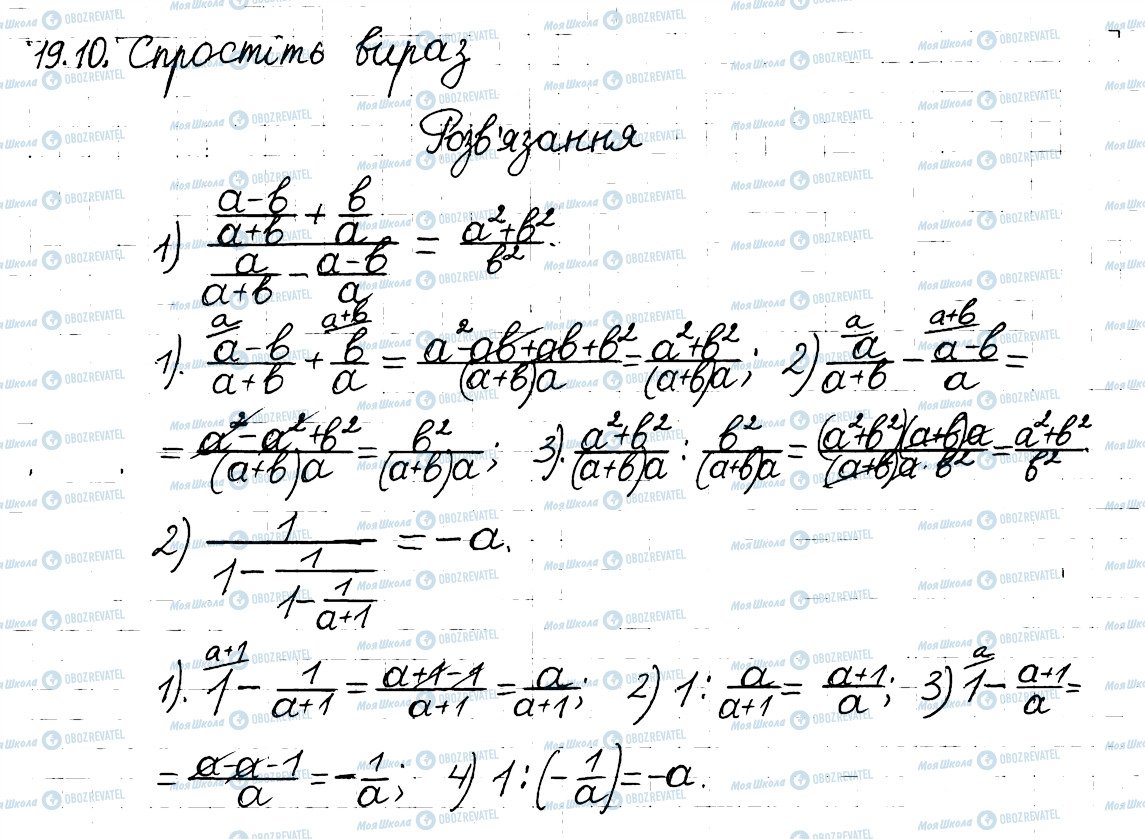 19.10. Спростіть вираз
Розв'язання
1) ((a-b)/(a+b) + b/a) / (a/(a+b) - (a-b)/a) = (a²+b²)/b².
1). (a-b)/(a+b) + b/a = (a²-ab+ab+b²)/((a+b)a) = (a²+b²)/((a+b)a); 2) a/(a+b) - (a-b)/a =
= (a²-a²+b²)/((a+b)a) = b²/((a+b)a); 3). (a²+b²)/((a+b)a) : b²/((a+b)a) = ((a²+b²)(a+b)a)/((a+b)a·b²) = (a²+b²)/b².
2) 1/(1-1/(1-1/(a+1))) = -a.
1). 1 - 1/(a+1) = (a+1-1)/(a+1) = a/(a+1); 2) 1 : a/(a+1) = (a+1)/a; 3) 1 - (a+1)/a =
= (a-a-1)/a = -1/a; 4) 1 : (-1/a) = -a.